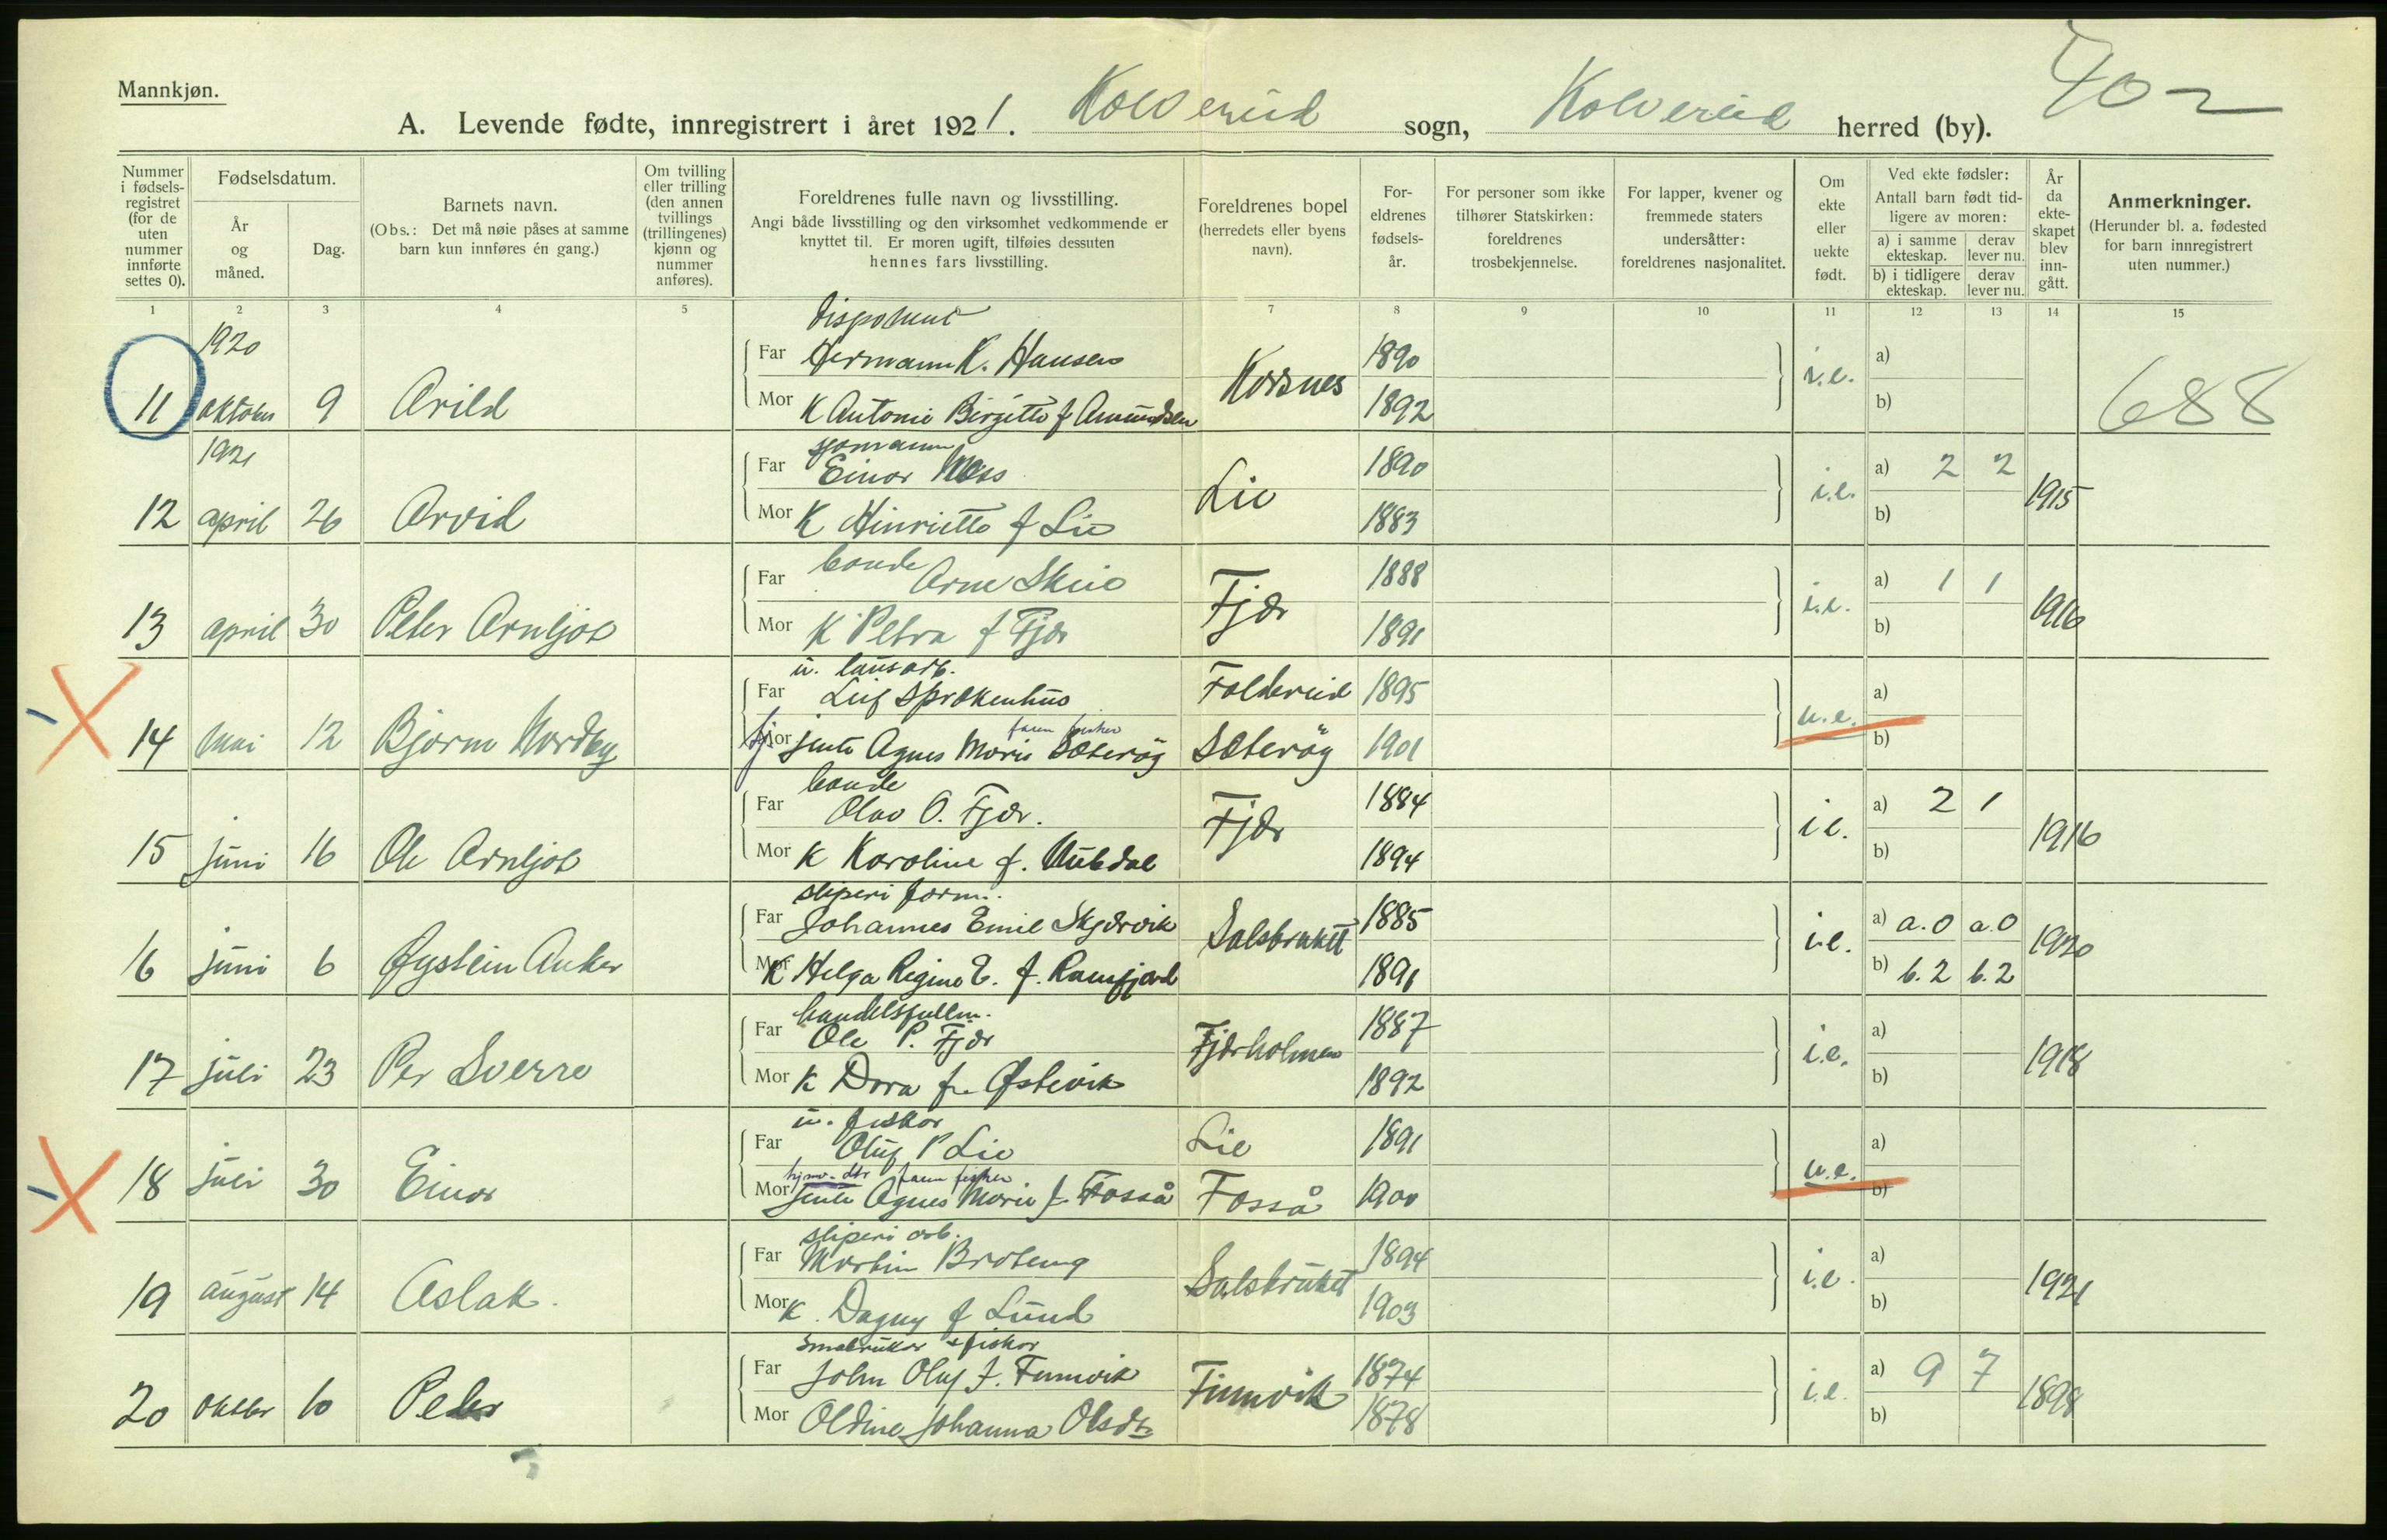 Mannkjøn.
40-2
A. Levende fødte, innregistrert i året 1921. Kolvereid sogn, Kolvereid herred (by).
Nummer i fødsels-registret (for de uten nummer innførte settes 0).
Fødselsdatum.
År og måned.
Dag.
Barnets navn.
(Obs.: Det må nøie påses at samme barn kun innføres én gang.)
Om tvilling eller trilling (den annen tvillings (trillingenes) kjønn og nummer anføres).
Foreldrenes fulle navn og livsstilling.
Angi både livsstilling og den virksomhet vedkommende er knyttet til. Er moren ugift, tilføies dessuten hennes fars livsstilling.
Foreldrenes bopel (herredets eller byens navn).
For-eldrenes fødsels-år.
For personer som ikke tilhører Statskirken: foreldrenes trosbekjennelse.
For lapper, kvener og fremmede staters undersåtter: foreldrenes nasjonalitet.
Om ekte eller uekte født.
Ved ekte fødsler:
Antall barn født tid-ligere av moren:
a) i samme ekteskap. derav lever nu.
b) i tidligere ekteskap. derav lever nu.
År da ekte-skapet blev inn-gått.
Anmerkninger.
(Herunder bl. a. fødested for barn innregistrert uten nummer.)
1 2 3 4 5 7 8 9 10 11 12 13 14 15
1920 disponent
Far Hermann K. Hansen 1890 a)
11 oktober 9 Arild Korsnes i.e. 688
Mor K Antonie Birgitte f Amundsen 1892 b)
1921 sjømann
Far Einar Moss 1890 a) 2 2
12 april 26 Arvid Lie i.e. 1915
Mor K Hinriette f Lie 1883 b)
bonde
Far Arne Skeie 1888 a) 1 1
13 april 30 Peter Arnljot Fjær i.e. 1916
Mor K Petra f Fjær 1891 b)
u. lausarb.
Far Leif Sprøkenhus Foldereid 1895 a)
14 mai 12 Bjarne Nordby u.e.
faren fisker
Mor jente Agnes Marie Sæterøy Sæterøy 1901 b)
bonde
Far Olav O. Fjær. 1884 a) 2 1
15 juni 16 Ole Arnljot Fjær i.e. 1916
Mor K Karoline f. Aubdal 1894 b)
sliperi form.
Far Johannes Emil Skjærvik 1885 a) a.0 a.0
16 juni 6 Øystein Anker Salsbruket i.e. 1920
Mor K Helga Regine E. f. Ramfjord 1891 b) b.2 b.2
handelsfullm.
Far Ole P. Fjær 1887 a)
17 juli 23 Per Sverre Fjærholmen i.e. 1918
Mor K Dora f. Østevik 1892 b)
u. fisker
Far Oluf P Lie Lie 1891 a)
18 juli 30 Einar u.e.
hjmv. dtr faren fisker
Mor jente Agnes Marie f Fosså Fosså 1900 b)
sliperi arb.
Far Martin Broteng 1894 a)
19 august 14 Aslak. Salsbruket i.e. 1921
Mor K. Dagny f Lund 1903 b)
småbruker + fisker
Far John Oluf J. Finnvik 1874 a) 9 7
20 oktbr 10 Peter Finnvik i.e. 1898
Mor Oldine Johanna Olsdtr 1878 b)